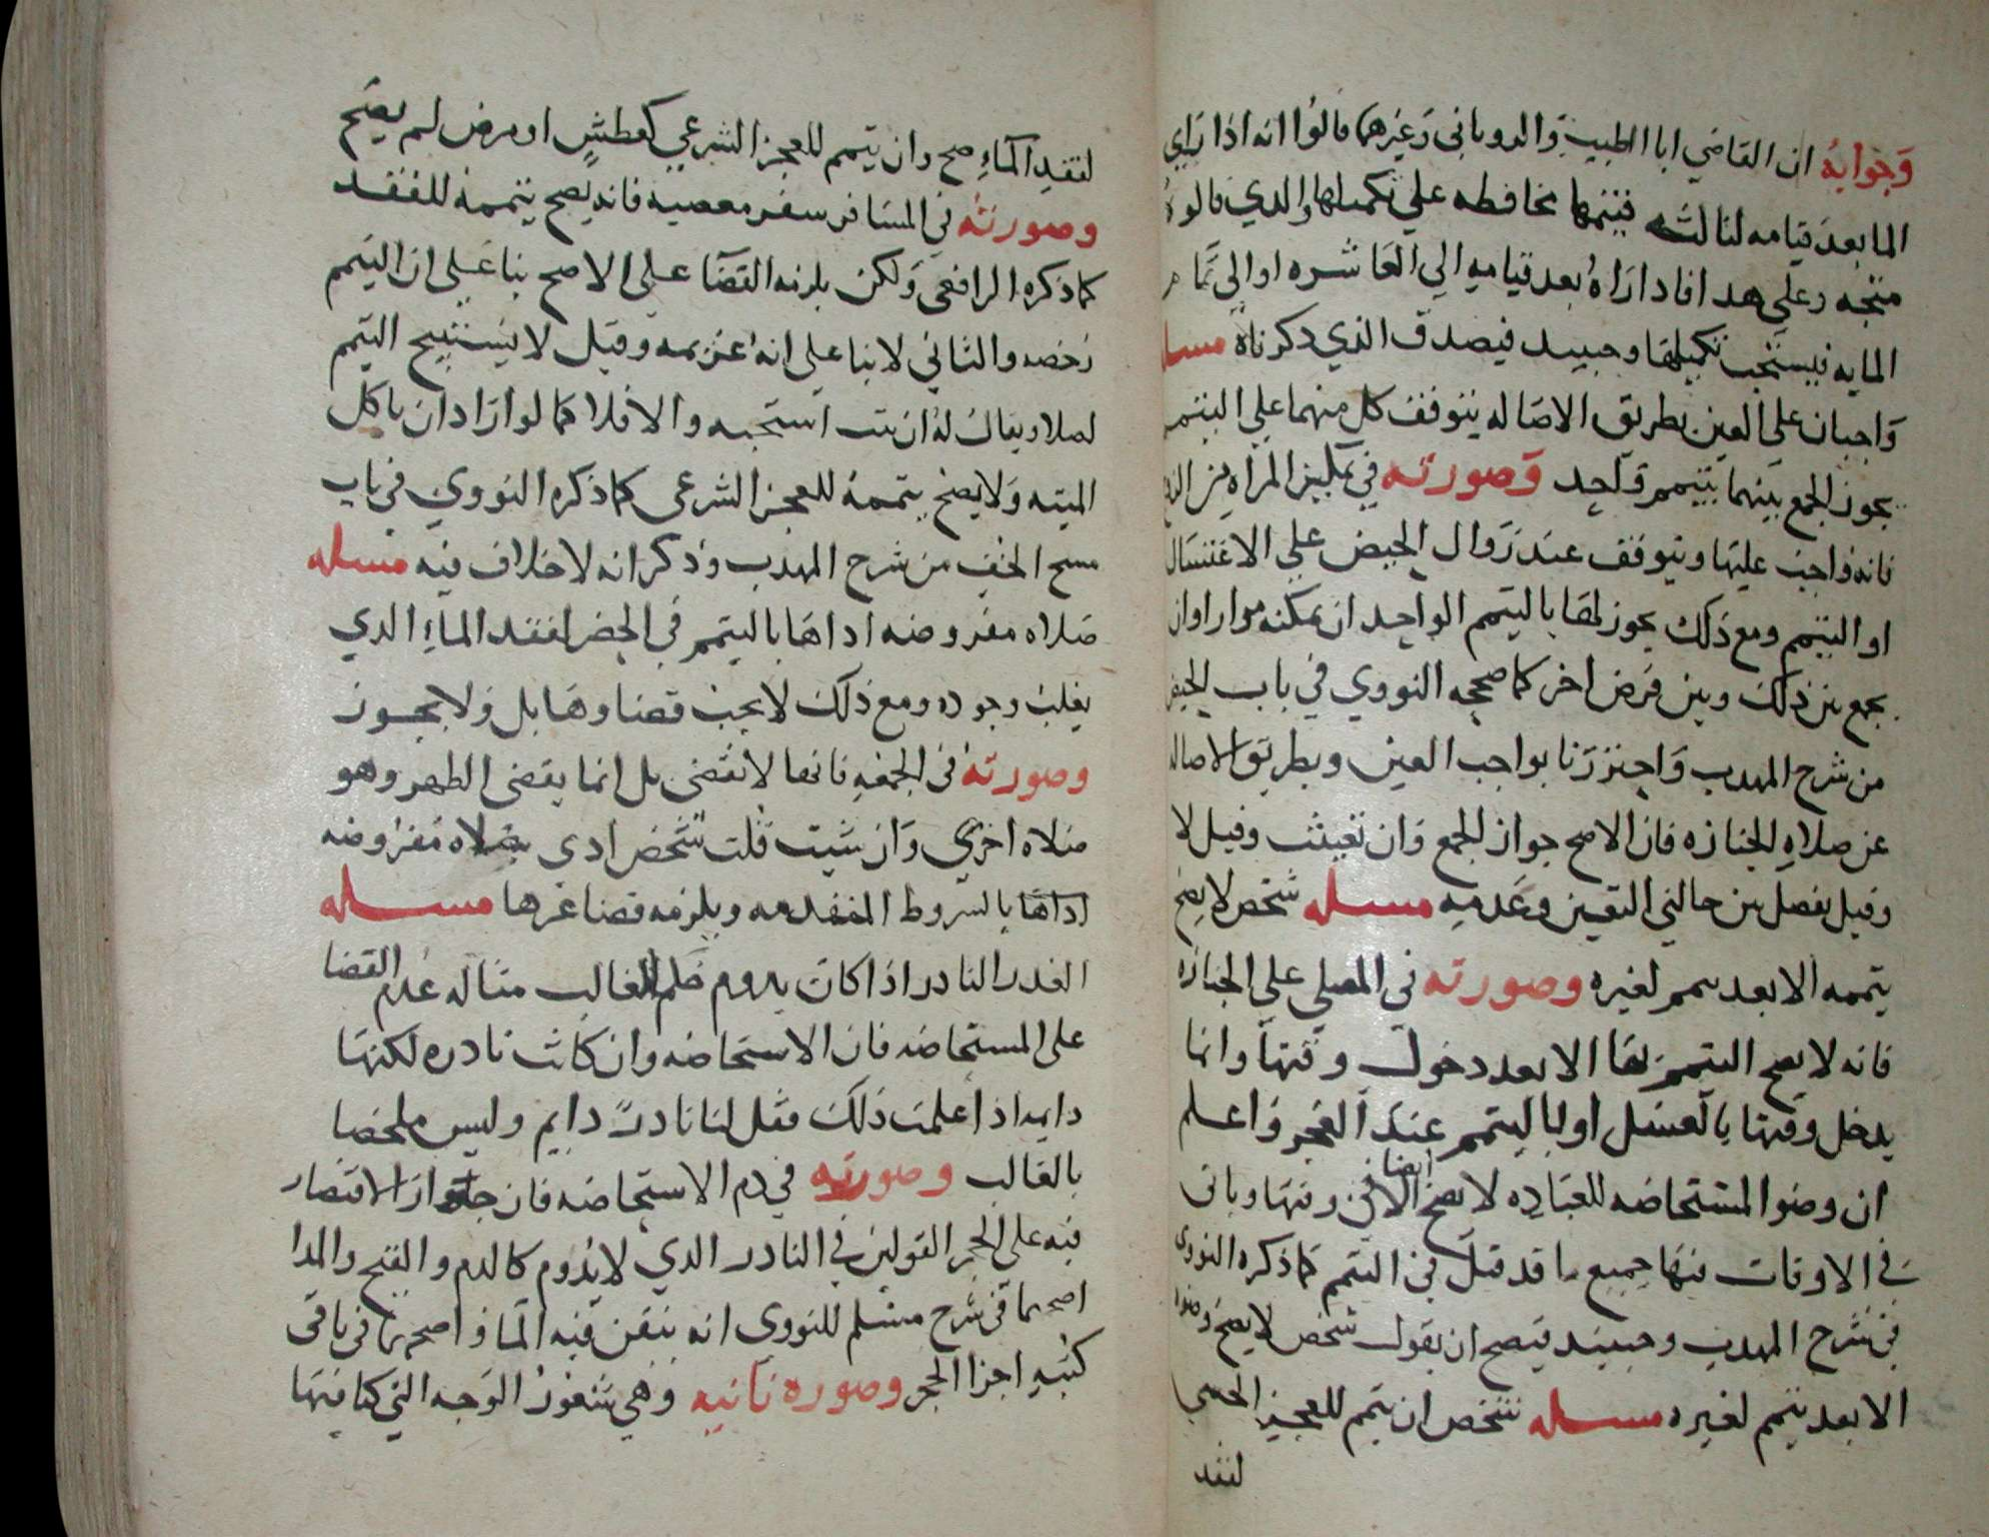 وجوابه ان القاضي ابا الطيب والروياني وغيرهما قالوا انه اذا راي
الما بعد قيامه لثالثه فيتمها محافظه علي تكميلها والذي قالوه
متجه وعلي هدا فاذا راه بعد قيامه الي العاشره او الي تمام
المايه فيستحب تكميلها وحينيد فيصدق الذي ذكرناه مسله
واجبان علي العين بطريق الاصاله يتوقف كل منهما علي التيمم
يجوز الجمع بينهما بتيمم واحد وصورته في تمكين المراه من
فانه واجب عليها ويتوقف عند زوال الحيض علي الاغتسال
او التيمم ومع ذلك يجوز لها بالتيمم الواحد ان تمكنه مرارا وان
يجمع بين ذلك وبين فرض اخر كما صححه النووي في باب الحيض
من شرح المهدب واحترزنا بواجب العين وبطريق الاصاله
عن صلاه الجنازه فان الاصح جواز الجمع وان تعينت وقيل لا
وقيل يفصل بين حالتي التعين وعدمه مسله شخص لا يصح
تيممه الا بعد تيمم لغيره وصورته في المصلي علي الجنازه
فانه لا يصح التيمم لها الا بعد دخول وقتها وانما
يدخل وقتها بالغسل او بالتيمم عند العجز واعلم
ان وضوا المستحاضه للعباده لا يصح ايضا الا في وقتها وياتي
في الاوقات فيها جميع ما قد قيل في التيمم كما ذكره النووي
في شرح المهدب وحينيد فيصح ان يقول شخص لا يصح وضوا
الا بعد تيمم لغيره مسله شخص ان تيمم للعجز الحسي
لفقد
لفقد الماء صح وان تيمم للعجز الشرعي كعطش او مرض لم يصح
وصورته في المسافر سفر معصيه فانه يصح تيممه للفقد
كما ذكره الرافعي ولكن يلزمه القضا علي الاصح بنا علي ان التيمم
رخصه والثاني لا بنا علي انه عزيمه وقيل لا يستبيح التيمم
اصلا ويقال له ان تبت استحبه والا فلا كما لو اراد ان ياكل
الميته ولا يصح تيممه للعجز الشرعي كما ذكره النووي في باب
مسح الخف من شرح المهدب وذكر انه لا خلاف فيه مسله
صلاه مفروضه اداها بالتيمم في الحضر لفقد الماء الدي
يغلب وجوده ومع ذلك لا يجب قضاوها بل ولا يجوز
وصورته في الجمعه فانها لا تقضي بل انما يقضي الظهر وهو
صلاه اخري وان شيت قلت شخص ادي صلاه مفروضه
اداها بالشروط المتقدمه ويلزمه قضا غيرها مسله
العدر النادر اذا كان يدوم حكم الغالب مثاله عدم القضا
علي المستحاضه فان الاستحاضه وان كانت نادره لكنها
دايمه اذا علمت ذلك فقل لنا نادر دايم وليس ملحقا
بالغالب وصورته في دم الاستحاضه فان جواز الاقتصار
فيه علي الحجر القولين في النادر الدي لا يدوم كالدم والقيح والمدا
اصحهما في شرح مسلم للنووي انه يتعين فيه الما واصحهما في باقي
كتبه اجزا الحجر وصوره ثانيه وهي شعور الوجه التي كنا فيها